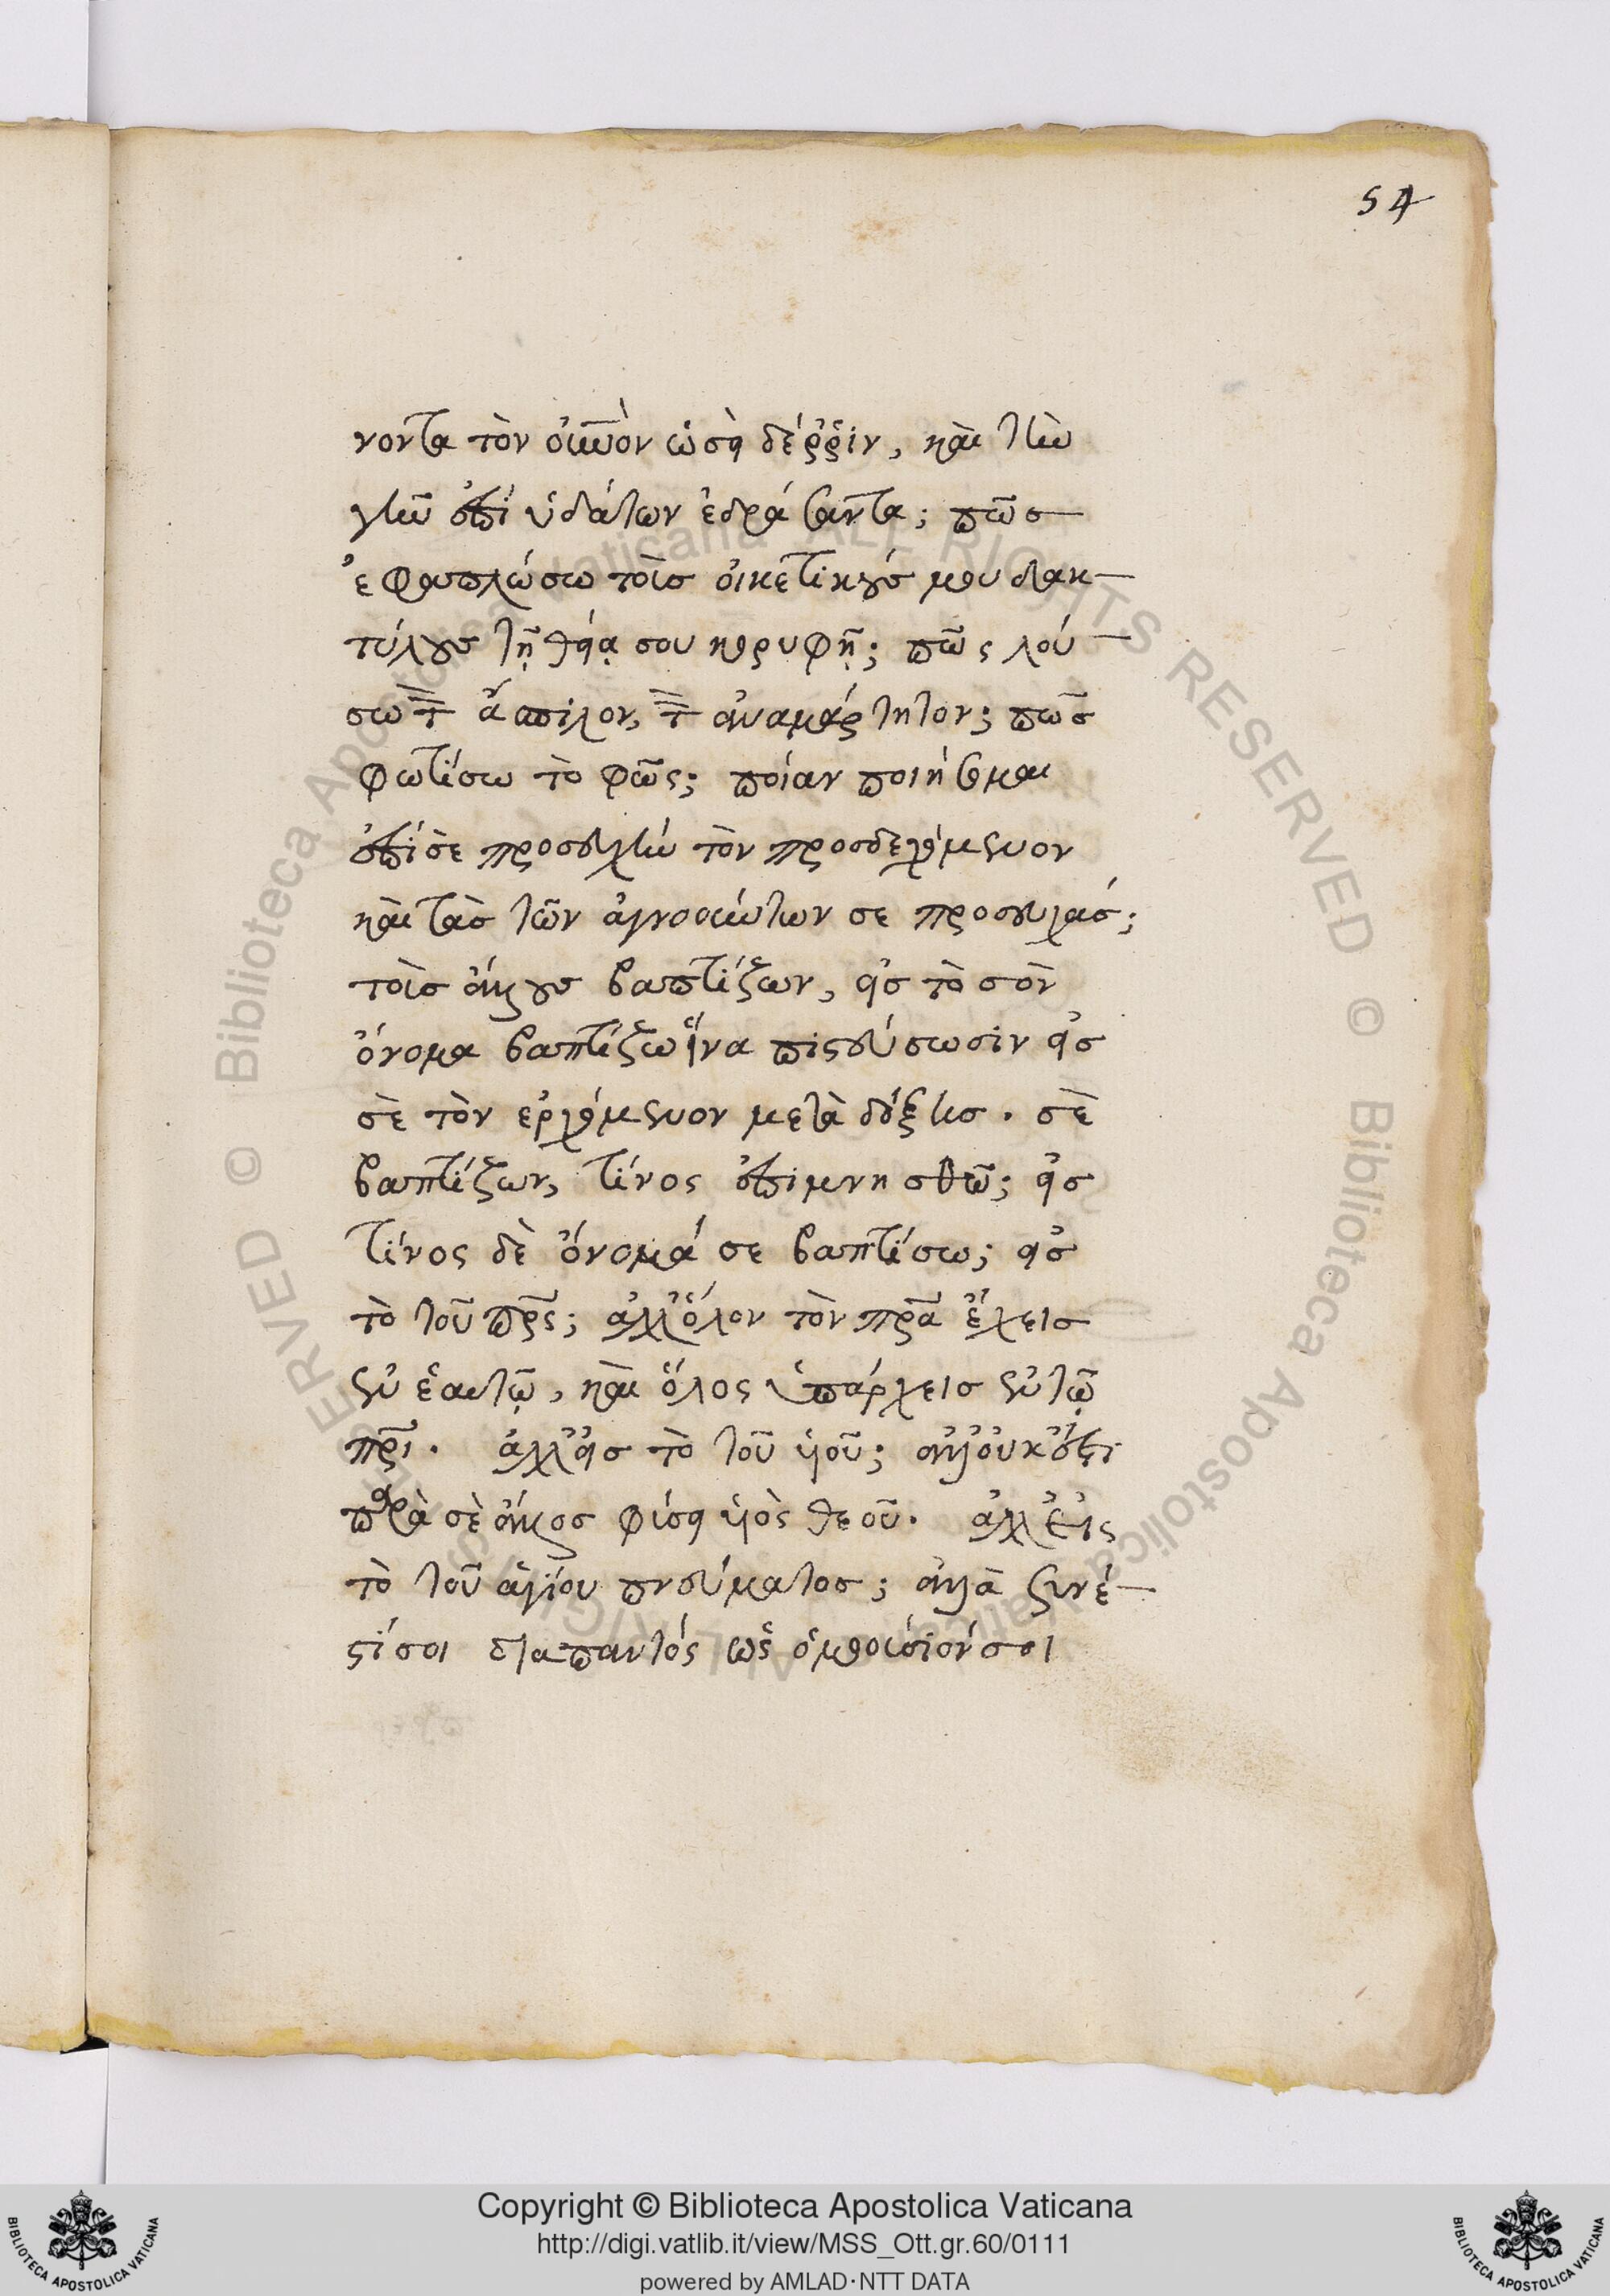 54
νοντα τὸν οὐνὸν ὡσεὶ δέῤῥιν, καὶ τὴν
γῆν ἐπὶ ὑδάτων ἑδράσαντα; πῶσ
ἐφαπλώσω τοῖσ οἰκετικοῖσ μου δακ-
τύλοισ τῆ θεία σου κορυφῆ; πῶς λού-
σω τὸν ἄσπιλον, τὸν ἀναμάρτητον; πῶσ
φωτίσω τὸ φῶς; ποίαν ποιήσομαι
ἐπί σε προσευχὴν τὸν προσδεχόμενον
καὶ τὰσ τῶν ἀγνοούντων σε προσευχάσ;
τοὺσ ἄλλουσ βαπτίζων, εἰσ τὸ σὸν
ὄνομα βαπτίζω ἵνα πιστεύσωσιν εἰσ
σὲ τὸν ἐρχόμενον μετὰ δόξησ. σὲ
βαπτίζων, τίνος ἐπιμνησθῶ; εἰσ
τίνος δὲ ὄνομά σε βαπτίσω; εἰσ
τὸ τοῦ πρς; ἀλλ' ὅλον τὸν πρα ἔχεισ
ἐν ἑαυτῷ, καὶ ὅλος ὑπάρχεισ ἐν τῷ
πρι. ἀλλ' εἰσ τὸ τοῦ υἱοῦ; ἀλλ' οὐκ ἔστι
παρὰ σὲ ἄλλοσ φύσει υἱὸς θεοῦ. ἀλλ' εἰς
τὸ τοῦ ἁγίου πνεύματοσ; ἀλλὰ ξυνέ-
στί σοι διαπαντός ὡς ὁμοούσιόν σοι
Copyright © Biblioteca Apostolica Vaticana
http://digi.vatlib.it/view/MSS_Ott.gr.60/0111
powered by AMLAD·NTT DATA